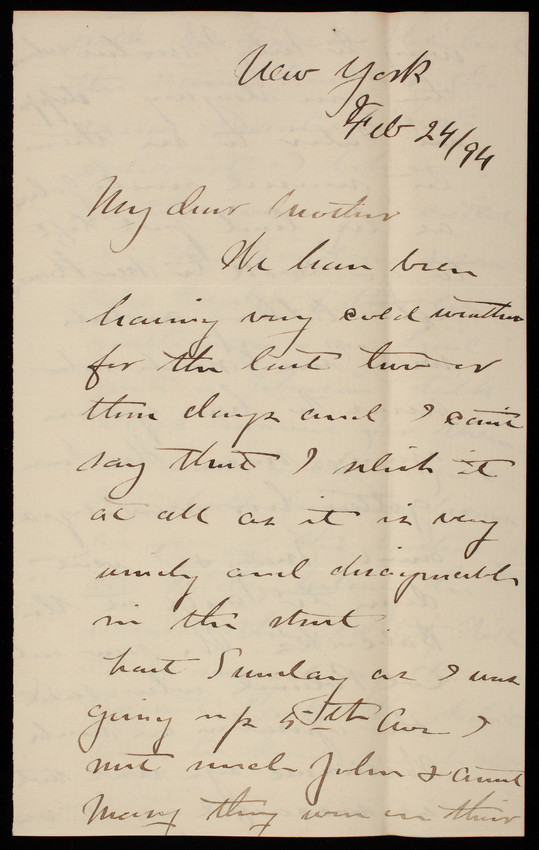 New York
Feb 24/94
My dear Mother
We have been
having very cold weather
for the last two or
three days and I can't
say that I relish it
at all as it is very
windy and disagreeable
in the street
Last Sunday as I was
going up 5th Ave I
met uncle John & aunt
Mary they were on their